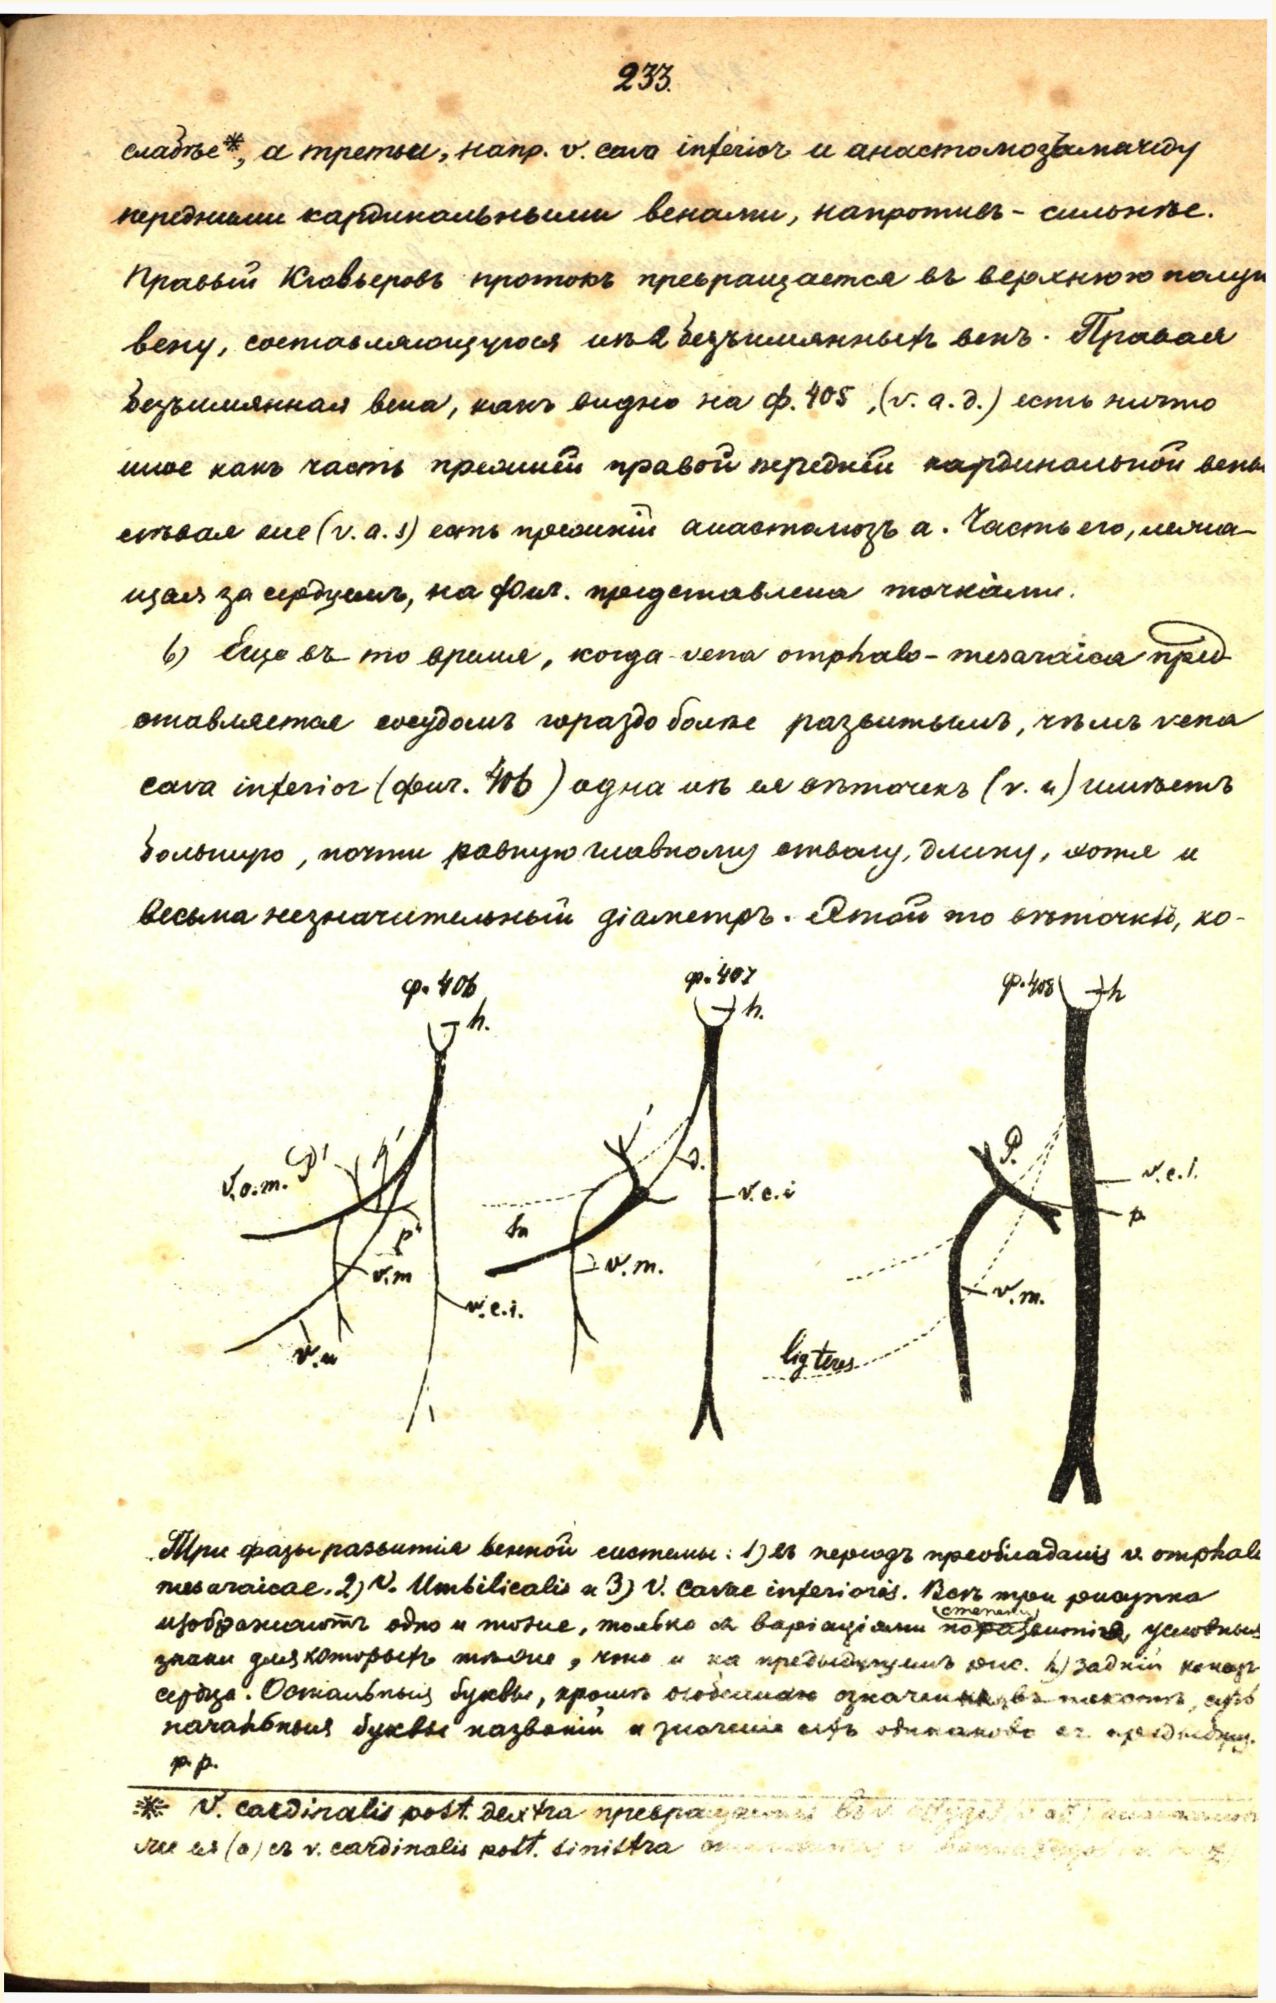 233.
слабѣе*, а третьи, напр. v. cava inferior и анастомозъ между
передними кардинальными венами, напротивъ - сильнѣе.
Правый Кювьеровъ протокъ превращается въ верхнюю полую
вену, составляющуюся изъ 2 безъимянныхъ венъ. Правая
безъимянная вена, какъ видно на ф. 405, (v. a. d.) есть ничто
иное какъ часть прежней правой передней кардинальной вены
лѣвая же (v. a. s) есть прежній анастомозъ а. Часть его, лежа-
щая за сердцемъ, на фиг. представлена точками.
b) Еще въ то время, когда vena omphalo-mesaraica пред-
ставляется сосудомъ гораздо болѣе развитымъ, чѣмъ vena
cava inferior (фиг. 406) одна изъ ея вѣточекъ (v. u) имѣетъ
большую, почти равную главному стволу, длину, хотя и
весьма незначительный діаметръ. Этой то вѣточкѣ, ко-
ф. 406
h.
v.o.m.
P'
p'
p'
v.m
v.u
v.c.i.
ф. 407
h.
s.
v.c.i
v.m.
ф. 408
h
P.
v.c.i.
p
v.m.
lig teres
Три фазы развитія венной системы: 1) въ періодъ преобладанія v. omphalo
mesaraicae. 2) V. Umbilicalis и 3) V. Cavae inferioris. Всѣ три рисунка
изображаютъ одно и тоже, только съ варіаціями по степени развитія, условные
знаки для которыхъ тѣ же, что и на предыдущемъ рис. h) задній конецъ
сердца. Остальныя буквы, кромѣ особенно означенныхъ въ текстѣ, суть
начальныя буквы названій и значеніе ихъ одинаково съ предыдущ.
p. p.
* V. cardinalis post. dextra превращается въ v.
ея (a) съ v. cardinalis post. sinistra